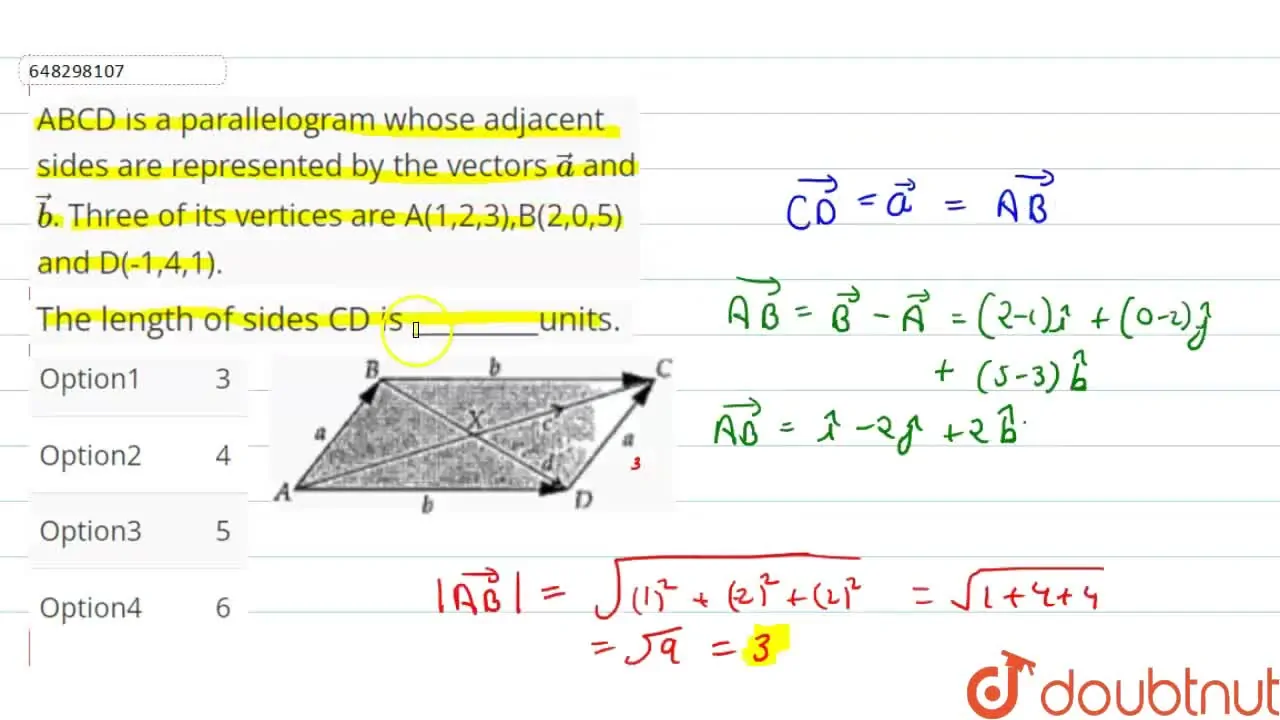 648298107
ABCD is a parallelogram whose adjacent
sides are represented by the vectors \vec{a} and
\vec{b}. Three of its vertices are A(1,2,3),B(2,0,5)
and D(-1,4,1).
The length of sides CD is ________units.
Option1 3
Option2 4
Option3 5
Option4 6
B b C
a X c a
3
d
A b D
\vec{CD} = \vec{a} = \vec{AB}
\vec{AB} = \vec{B} - \vec{A} = (2-1)î + (0-2)ĵ
+ (5-3)k̂
\vec{AB} = î - 2ĵ + 2k̂
|\vec{AB}| = √(1)² + (2)² + (2)² = √1+4+4
= √9 = 3
doubtnut